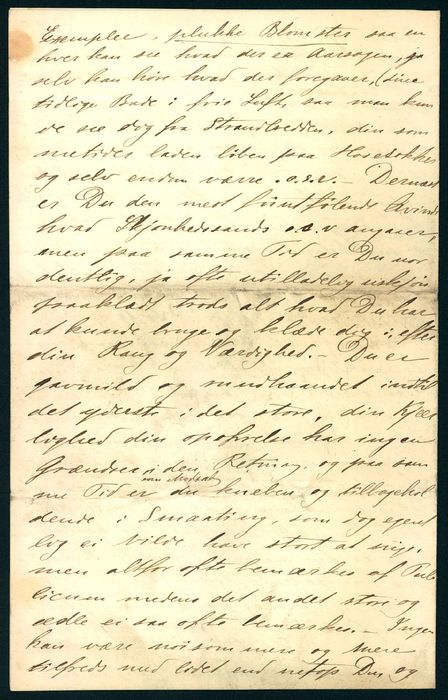 Exempler, plukke Blomster saa en
hver kan see hvad der er Aarsagen, ja
selv kan høre hvad der foregaaer, (sine
tidlige Bade i frie Luft, saa man kun
de see dig fra Strandbredden, din som
metider laden løben paa Hosesokker
og selv endnu værre .o.s.v. — Dernæst
er Du den mest fiintfølende Kvinde
hvad Skjønhedssands o.s.v angaaer,
men paa samme Tid er Du uor
dentlig, ja ofte utilladelig uskjøn
paaklædt trods alt hvad Du har
at kunde bruge og klæde dig i, efter
din Rang og Værdighed. — Du er
gavmild og rundhaandet indtil
det yderste i det store, din Kjær
lighed din opofrelse har ingen
Grændser i den Retning, og paa sam
som Modsat
me Tid er du kneben og tilbagehol
dende i Smaating, som dog egent
lig ei vilde have stort at sige,
men altfor ofte bemærkes af Pub
licum medens det andet store og
ædle ei saa ofte bemærkes. — Ingen
kan være nøisommere og mere
tilfreds med lidet end netop Du, og